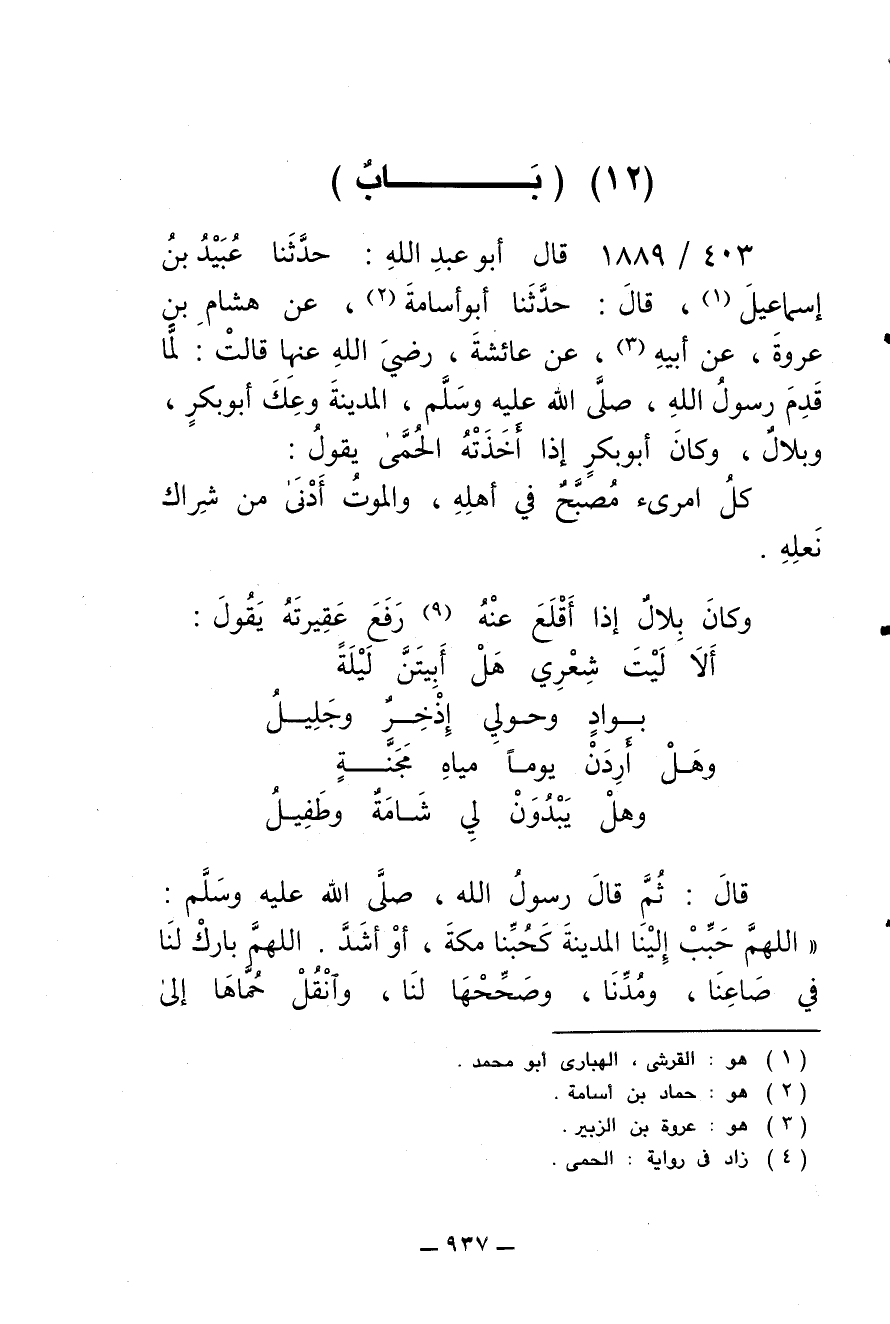 (١٢) ( بَـــــــابٌ )
٤٠٣ / ١٨٨٩ قال أبو عبدِ اللهِ : حدَّثَنا عُبَيْدُ بنُ
إسماعيلَ (١) ، قالَ : حدَّثَنا أبوأسامةَ (٢) ، عن هشامِ بنِ
عروةَ ، عن أبيهِ (٣) ، عن عائشةَ ، رضيَ اللهِ عنها قالتْ : لمَّا
قَدِمَ رسولُ اللهِ ، صلَّى الله عليه وسَلَّم ، المدينةَ وعِكَ أبوبكرٍ ،
وبلالٌ ، وكانَ أبوبكرٍ إذا أَخَذَتْهُ الحُمَّىٰ يقولُ :
كلُ امرىء مُصبَّحٌ في أهلِهِ ، والموتُ أَدْنَىٰ من شِراك
نَعلِهِ .
وكانَ بِلالٌ إذا أَقْلَعَ عنْهُ (٩) رَفَعَ عَقِيرتَهُ يَقُولَ :
أَلَا لَيْتَ شِعْرِي هَلْ أَبِيتَنَّ لَيْلَةً
بــوادٍ وحـولي إِذْخِــرٌ وجَلِيــلُ
وهَــلْ أَرِدَنْ يومـاً مياهِ مَجَنَّــــةٍ
وهلْ يَبْدُوَنْ لِي شَــامَةٌ وطَفِيلُ
قالَ : ثُمَّ قالَ رسولُ الله ، صلَّى الله عليه وسَلَّم :
« اللهمَّ حَبِّبْ إِلَيْنَا المدينةَ كَحُبِّنا مكةَ ، أوْ أشَدَّ . اللهمَّ باركْ لنَا
في صَاعِنَا ، ومُدِّنَا ، وصَحِّحْهَا لنَا ، وٱنْقُلْ حُمَّاهَا إلىٰ
(١) هو : القرشى ، الهبارى أبو محمد .
(٢) هو : حماد بن أسامة .
(٣) هو : عروة بن الزبير .
(٤) زاد فى رواية : الحمى .
ــ ٩٣٧ ــ